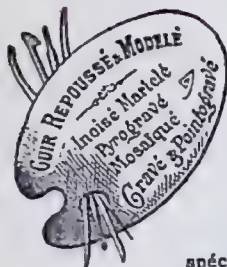 CUIR REPOUSSÉ & MODELÉ
Incisé Martelé
Pyrogravé
Mosaïqué
Gravé & Pointogravé
spéc